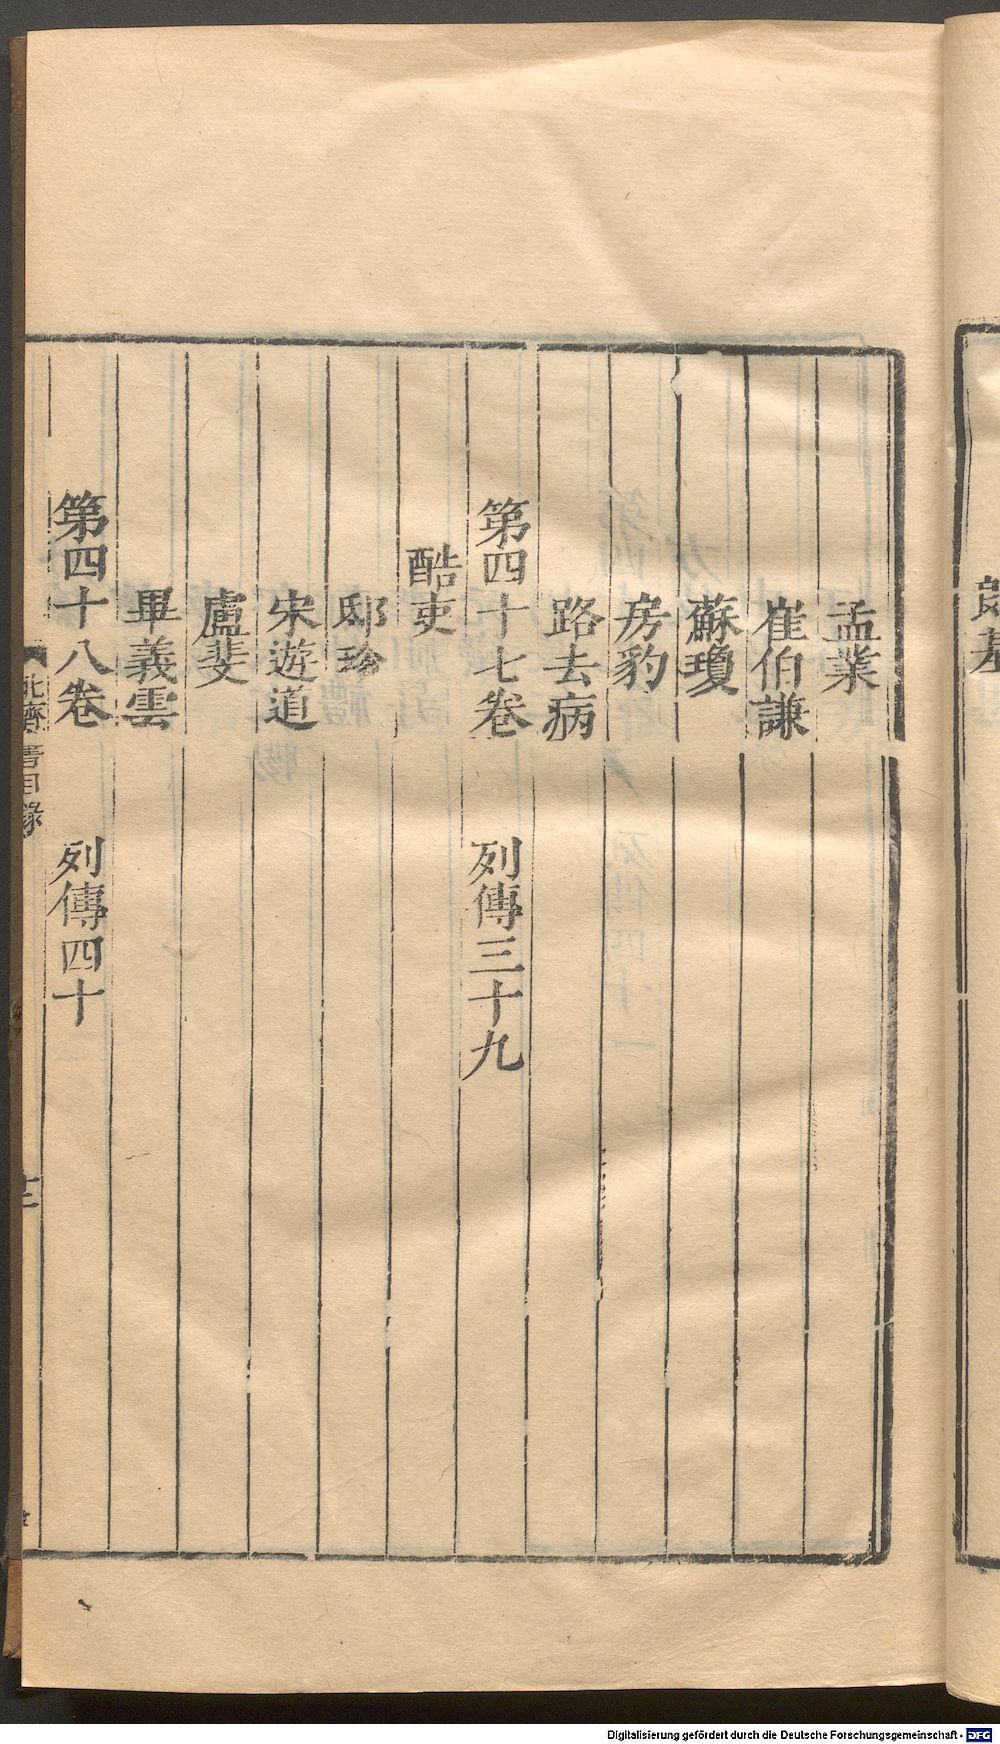 孟業
崔伯謙
蘇瓊
房豹
路去病
第四十七卷 列傳三十九
酷吏
邸珍
宋遊道
盧斐
畢義雲
第四十八卷 列傳四十
北齊書目錄
十二
Digitalisierung gefördert durch die Deutsche Forschungsgemeinschaft - DFG